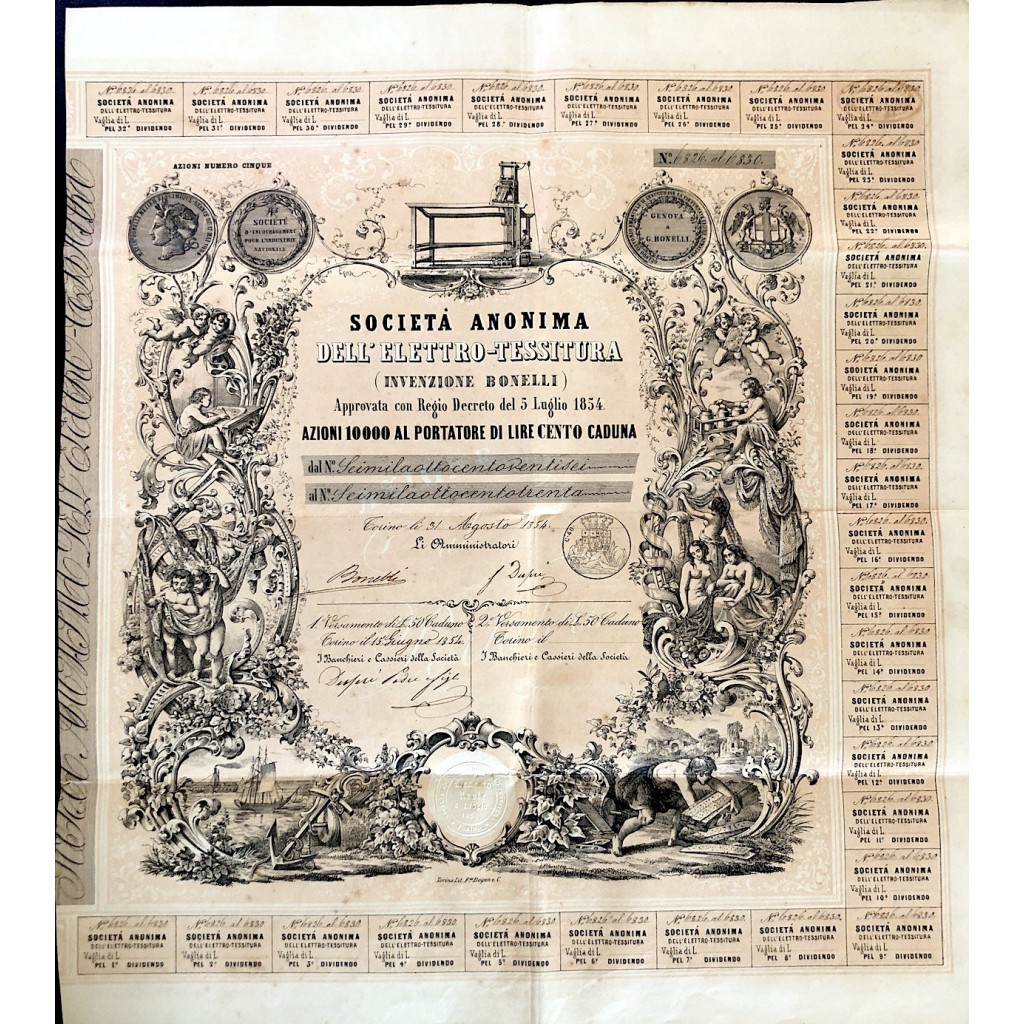 Nº 6826. al 6830. SOCIETÀ ANONIMA DELL'ELETTRO-TESSITURA Vaglia di L. PEL 32º DIVIDENDO
Nº 6826. al 6830. SOCIETÀ ANONIMA DELL'ELETTRO-TESSITURA Vaglia di L. PEL 31º DIVIDENDO
Nº 6826. al 6830. SOCIETÀ ANONIMA DELL'ELETTRO-TESSITURA Vaglia di L. PEL 30º DIVIDENDO
Nº 6826. al 6830. SOCIETÀ ANONIMA DELL'ELETTRO-TESSITURA Vaglia di L. PEL 29º DIVIDENDO
Nº 6826. al 6830. SOCIETÀ ANONIMA DELL'ELETTRO-TESSITURA Vaglia di L. PEL 28º DIVIDENDO
Nº 6826. al 6830. SOCIETÀ ANONIMA DELL'ELETTRO-TESSITURA Vaglia di L. PEL 27º DIVIDENDO
Nº 6826. al 6830. SOCIETÀ ANONIMA DELL'ELETTRO-TESSITURA Vaglia di L. PEL 26º DIVIDENDO
Nº 6826. al 6830. SOCIETÀ ANONIMA DELL'ELETTRO-TESSITURA Vaglia di L. PEL 25º DIVIDENDO
Nº 6826. al 6830. SOCIETÀ ANONIMA DELL'ELETTRO-TESSITURA Vaglia di L. PEL 24º DIVIDENDO
AZIONI NUMERO CINQUE
Nº 6826. al 6830.
SOCIÉTÉ
D'ENCOURAGEMENT
POUR L'INDUSTRIE
NATIONALE
GENOVA
A
G. BONELLI
SOCIETÀ ANONIMA
DELL'ELETTRO-TESSITURA
(INVENZIONE BONELLI)
Approvata con Regio Decreto del 5 Luglio 1854.
AZIONI 10000 AL PORTATORE DI LIRE CENTO CADUNA
dal Nº Seimilaottocentoventisei
al Nº Seimilaottocentotrenta
Torino le 31 Agosto 1854.
Li Amministratori
Bonelli
J Dupré
1. Versamento di L. 50 Caduno
Torino il 15 Giugno 1854.
I Banchieri e Cassieri della Società
2º Versamento di L. 50 Caduno
Torino il
I Banchieri e Cassieri della Società
Torino Lit. Fll Doyen e C.
Nº 6826. al 6830. SOCIETÀ ANONIMA DELL'ELETTRO-TESSITURA Vaglia di L. PEL 23º DIVIDENDO
Nº 6826. al 6830. SOCIETÀ ANONIMA DELL'ELETTRO-TESSITURA Vaglia di L. PEL 22º DIVIDENDO
Nº 6826. al 6830. SOCIETÀ ANONIMA DELL'ELETTRO-TESSITURA Vaglia di L. PEL 21º DIVIDENDO
Nº 6826. al 6830. SOCIETÀ ANONIMA DELL'ELETTRO-TESSITURA Vaglia di L. PEL 20º DIVIDENDO
Nº 6826. al 6830. SOCIETÀ ANONIMA DELL'ELETTRO-TESSITURA Vaglia di L. PEL 19º DIVIDENDO
Nº 6826. al 6830. SOCIETÀ ANONIMA DELL'ELETTRO-TESSITURA Vaglia di L. PEL 18º DIVIDENDO
Nº 6826. al 6830. SOCIETÀ ANONIMA DELL'ELETTRO-TESSITURA Vaglia di L. PEL 17º DIVIDENDO
Nº 6826. al 6830. SOCIETÀ ANONIMA DELL'ELETTRO-TESSITURA Vaglia di L. PEL 16º DIVIDENDO
Nº 6826. al 6830. SOCIETÀ ANONIMA DELL'ELETTRO-TESSITURA Vaglia di L. PEL 15º DIVIDENDO
Nº 6826. al 6830. SOCIETÀ ANONIMA DELL'ELETTRO-TESSITURA Vaglia di L. PEL 14º DIVIDENDO
Nº 6826. al 6830. SOCIETÀ ANONIMA DELL'ELETTRO-TESSITURA Vaglia di L. PEL 13º DIVIDENDO
Nº 6826. al 6830. SOCIETÀ ANONIMA DELL'ELETTRO-TESSITURA Vaglia di L. PEL 12º DIVIDENDO
Nº 6826. al 6830. SOCIETÀ ANONIMA DELL'ELETTRO-TESSITURA Vaglia di L. PEL 11º DIVIDENDO
Nº 6826. al 6830. SOCIETÀ ANONIMA DELL'ELETTRO-TESSITURA Vaglia di L. PEL 10º DIVIDENDO
Nº 6826. al 6830. SOCIETÀ ANONIMA DELL'ELETTRO-TESSITURA Vaglia di L. PEL 1º DIVIDENDO
Nº 6826. al 6830. SOCIETÀ ANONIMA DELL'ELETTRO-TESSITURA Vaglia di L. PEL 2º DIVIDENDO
Nº 6826. al 6830. SOCIETÀ ANONIMA DELL'ELETTRO-TESSITURA Vaglia di L. PEL 3º DIVIDENDO
Nº 6826. al 6830. SOCIETÀ ANONIMA DELL'ELETTRO-TESSITURA Vaglia di L. PEL 4º DIVIDENDO
Nº 6826. al 6830. SOCIETÀ ANONIMA DELL'ELETTRO-TESSITURA Vaglia di L. PEL 5º DIVIDENDO
Nº 6826. al 6830. SOCIETÀ ANONIMA DELL'ELETTRO-TESSITURA Vaglia di L. PEL 6º DIVIDENDO
Nº 6826. al 6830. SOCIETÀ ANONIMA DELL'ELETTRO-TESSITURA Vaglia di L. PEL 7º DIVIDENDO
Nº 6826. al 6830. SOCIETÀ ANONIMA DELL'ELETTRO-TESSITURA Vaglia di L. PEL 8º DIVIDENDO
Nº 6826. al 6830. SOCIETÀ ANONIMA DELL'ELETTRO-TESSITURA Vaglia di L. PEL 9º DIVIDENDO